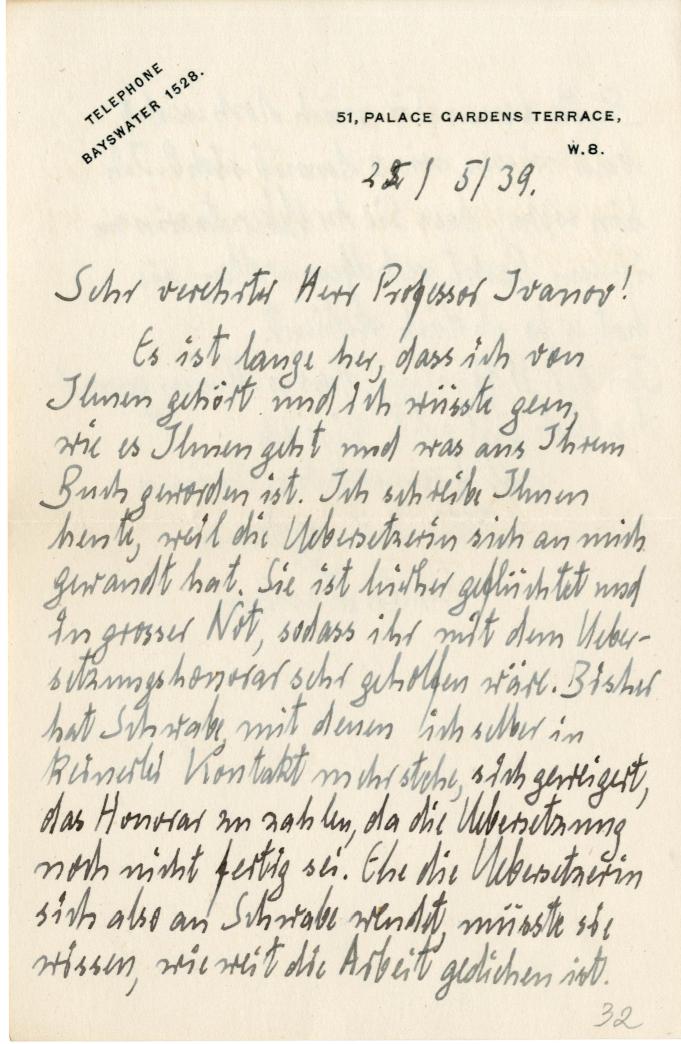 TELEPHONE
BAYSWATER 1528.
51, PALACE GARDENS TERRACE,
W.8.
22/5/39.
Sehr verehrter Herr Professor Ivanov!
Es ist lange her, dass ich von
Ihnen gehört und ich wüsste gern,
wie es Ihnen geht und was aus Ihrem
Buch geworden ist. Ich schreibe Ihnen
heute, weil die Uebersetzerin sich an mich
gewandt hat. Sie ist hierher geflüchtet und
in grosser Not, sodass ihr mit dem Ueber-
setzungshonorar sehr geholfen wäre. Bisher
hat Schwabe, mit denen ich selber in
keinerlei Kontakt mehr stehe, sich geweigert,
das Honorar zu zahlen, da die Uebersetzung
noch nicht fertig sei. Ehe die Uebersetzerin
sich also an Schwabe wendet, müsste sie
wissen, wie weit die Arbeit gediehen ist.
32